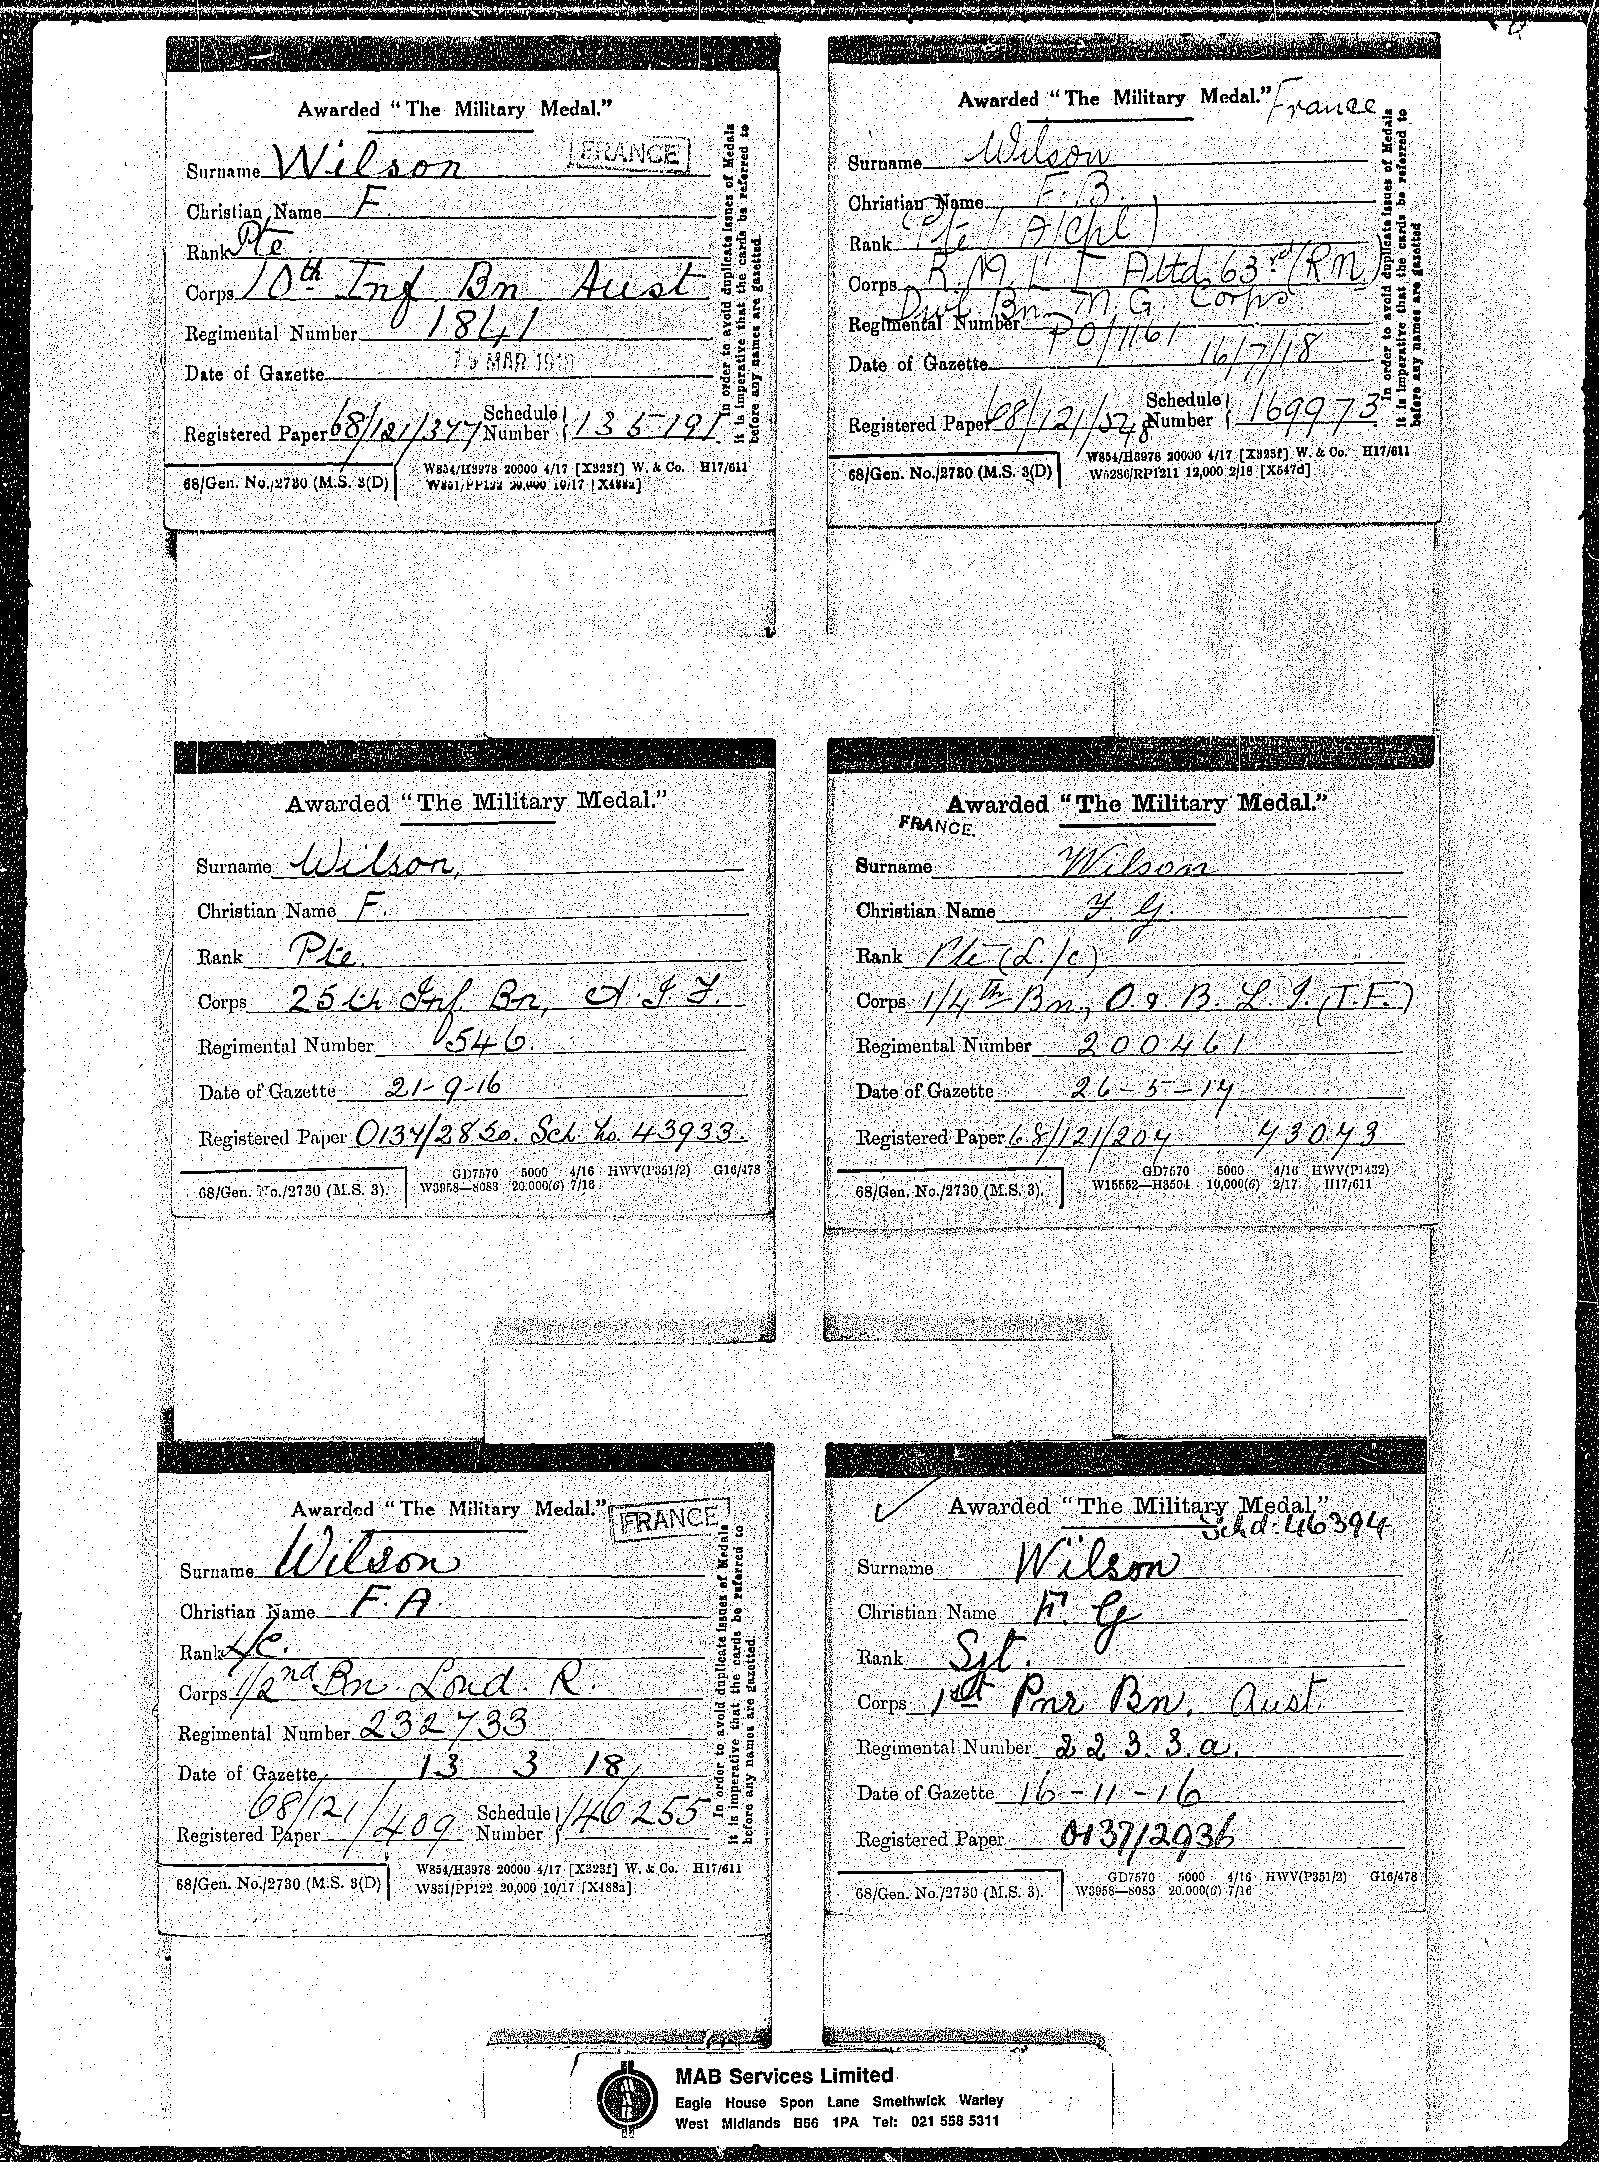 Awarded “The Military Medal.”
FRANCE
Surname Wilson
Christian Name F.
Rank Pte
Corps 10th Inf Bn Aust
Regimental Number 1841
Date of Gazette MAR
Registered Paper 68/121/347 Schedule Number 135191
In order to avoid duplicate issues of Medals
it is imperative that the cards be referred to
before any names are gazetted.
68/Gen. No./2730 (M.S. 3(D)
W854/H3978 20000 4/17 [X323f] W. & Co. H17/611
W851/PP122 20,000 10/17 [X488a]
Awarded “The Military Medal.” France
Surname Wilson
Christian Name F. B.
Rank Pte (A/Cpl)
Corps R. M. L I Attd. 63rd (RN)
Div. Bn. M. G. Corps
Regimental Number PO/1161
Date of Gazette 16/7/18
Registered Paper 68/121/ Schedule Number 169973
In order to avoid duplicate issues of Medals
it is imperative that the cards be referred to
before any names are gazetted
68/Gen. No./2730 (M.S. 3(D)
W854/H3978 20000 4/17 [X323f] W. & Co. H17/611
W5286/RP1211 12,000 2/18 [X547d]
Awarded “The Military Medal.”
Surname Wilson,
Christian Name F.
Rank Pte.
Corps 25th Inf Bn, A. I. F.
Regimental Number 546.
Date of Gazette 21-9-16
Registered Paper 0137/2850. Sch No. 43933.
68/Gen. No./2730 (M.S. 3).
GD7570 5000 4/16 HWV(P351/2) G16/478
W3958—8083 20.000(6) 7/16
Awarded “The Military Medal.”
FRANCE.
Surname Wilson
Christian Name F. G.
Rank Pte (L./c)
Corps 1/4th Bn., O & B. L. I. (T.F.)
Regimental Number 200461
Date of Gazette 26-5-17
Registered Paper 68/121/204 73073
68/Gen. No./2730 (M.S. 3).
GD7570 5000 4/16 HWV(P1432)
W15552—H3504 10,000(6) 2/17 H17/611
Awarded “The Military Medal.”
FRANCE
Surname Wilson
Christian Name F. A.
Rank L/c.
Corps 1/2nd Bn. Lond. R.
Regimental Number 232733
Date of Gazette 13 3 18
Registered Paper 68/121/409 Schedule Number 146255
In order to avoid duplicate issues of Medals
it is imperative that the cards be referred to
before any names are gazetted.
68/Gen. No./2730 (M.S. 3(D)
W854/H3978 20000 4/17 [X323f] W. & Co. H17/611
W851/PP122 20,000 10/17 [X488a]
Awarded “The Military Medal.”
Schd. 46394
Surname Wilson
Christian Name F. G
Rank Sjt.
Corps 1st Pnr Bn. Aust.
Regimental Number 2233.a.
Date of Gazette 16-11-16
Registered Paper 0137/2936
68/Gen. No./2730 (M.S. 3).
GD7570 5000 4/16 HWV(P351/2) G16/478
W3958—8083 20.000(6) 7/16
MAB Services Limited
Eagle House Spon Lane Smethwick Warley
West Midlands B66 1PA Tel: 021 558 5311